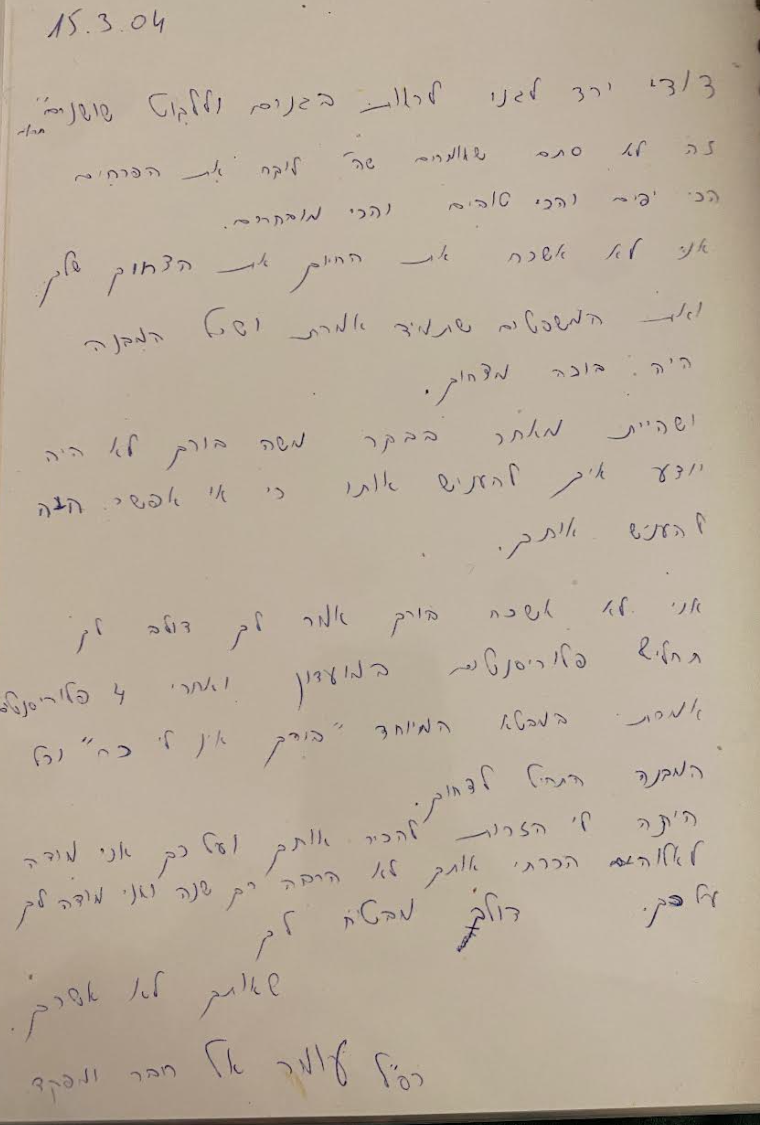 15.3.04
דודי ירד לגני לראות בגנים וללקוט שושנים"
זה לא סתם שאומרים שה' ליקר את הפרחים
הכי יפים והכי טובים והכי מובחרים.
אני לא אשכח את החיוך את הצחוק שלך
ואת המשפטים שתמיד אמרת ושכל המבנה
היה בוכה מצחוק.
ושהיית מאחר בבקר משה בורק לא היה
יודע איך להעניש אותו כי אי אפשר היה
להעניש איתך.
אני לא אשכח בורק אמר לך דולב לך
תחליש פלוריסנטים במועדון ואחרי 4 פלוריסנטים
אמרת במבטא המיוחד "בורק אין לי כח" וכל
המבנה התחיל לצחוק.
היתה לי הזכות להכיר אותך ועל כך אני מודה
לאלוהים הכרתי אותך לא הרבה רק שנה ואני מודה לך
על כך. דולב מבטיח לך
שאותך לא אשכח.
רס"ל עומר אל חבר ומפקד